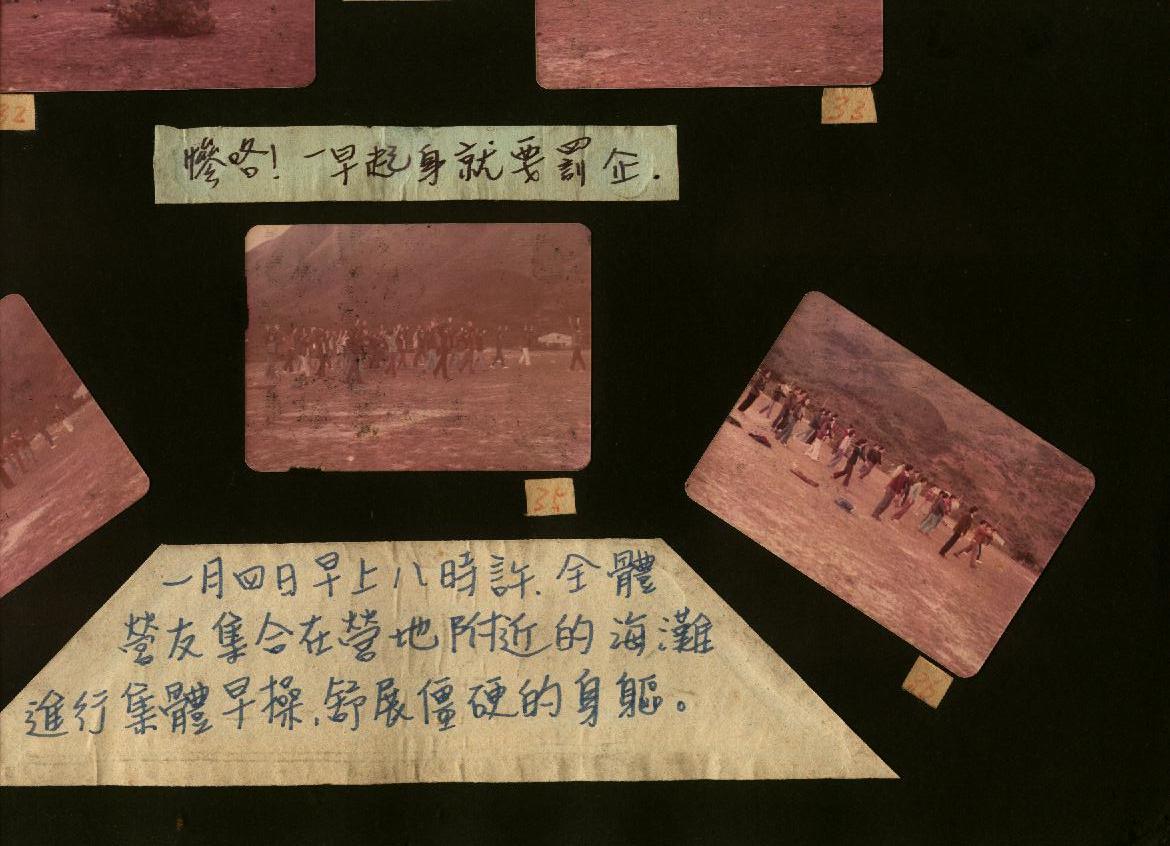 32
33
慘咯！一早起身就要罰企.
35
一月四日早上八時許.全體
營友集合在營地附近的海灘
進行集體早操,舒展僵硬的身軀。